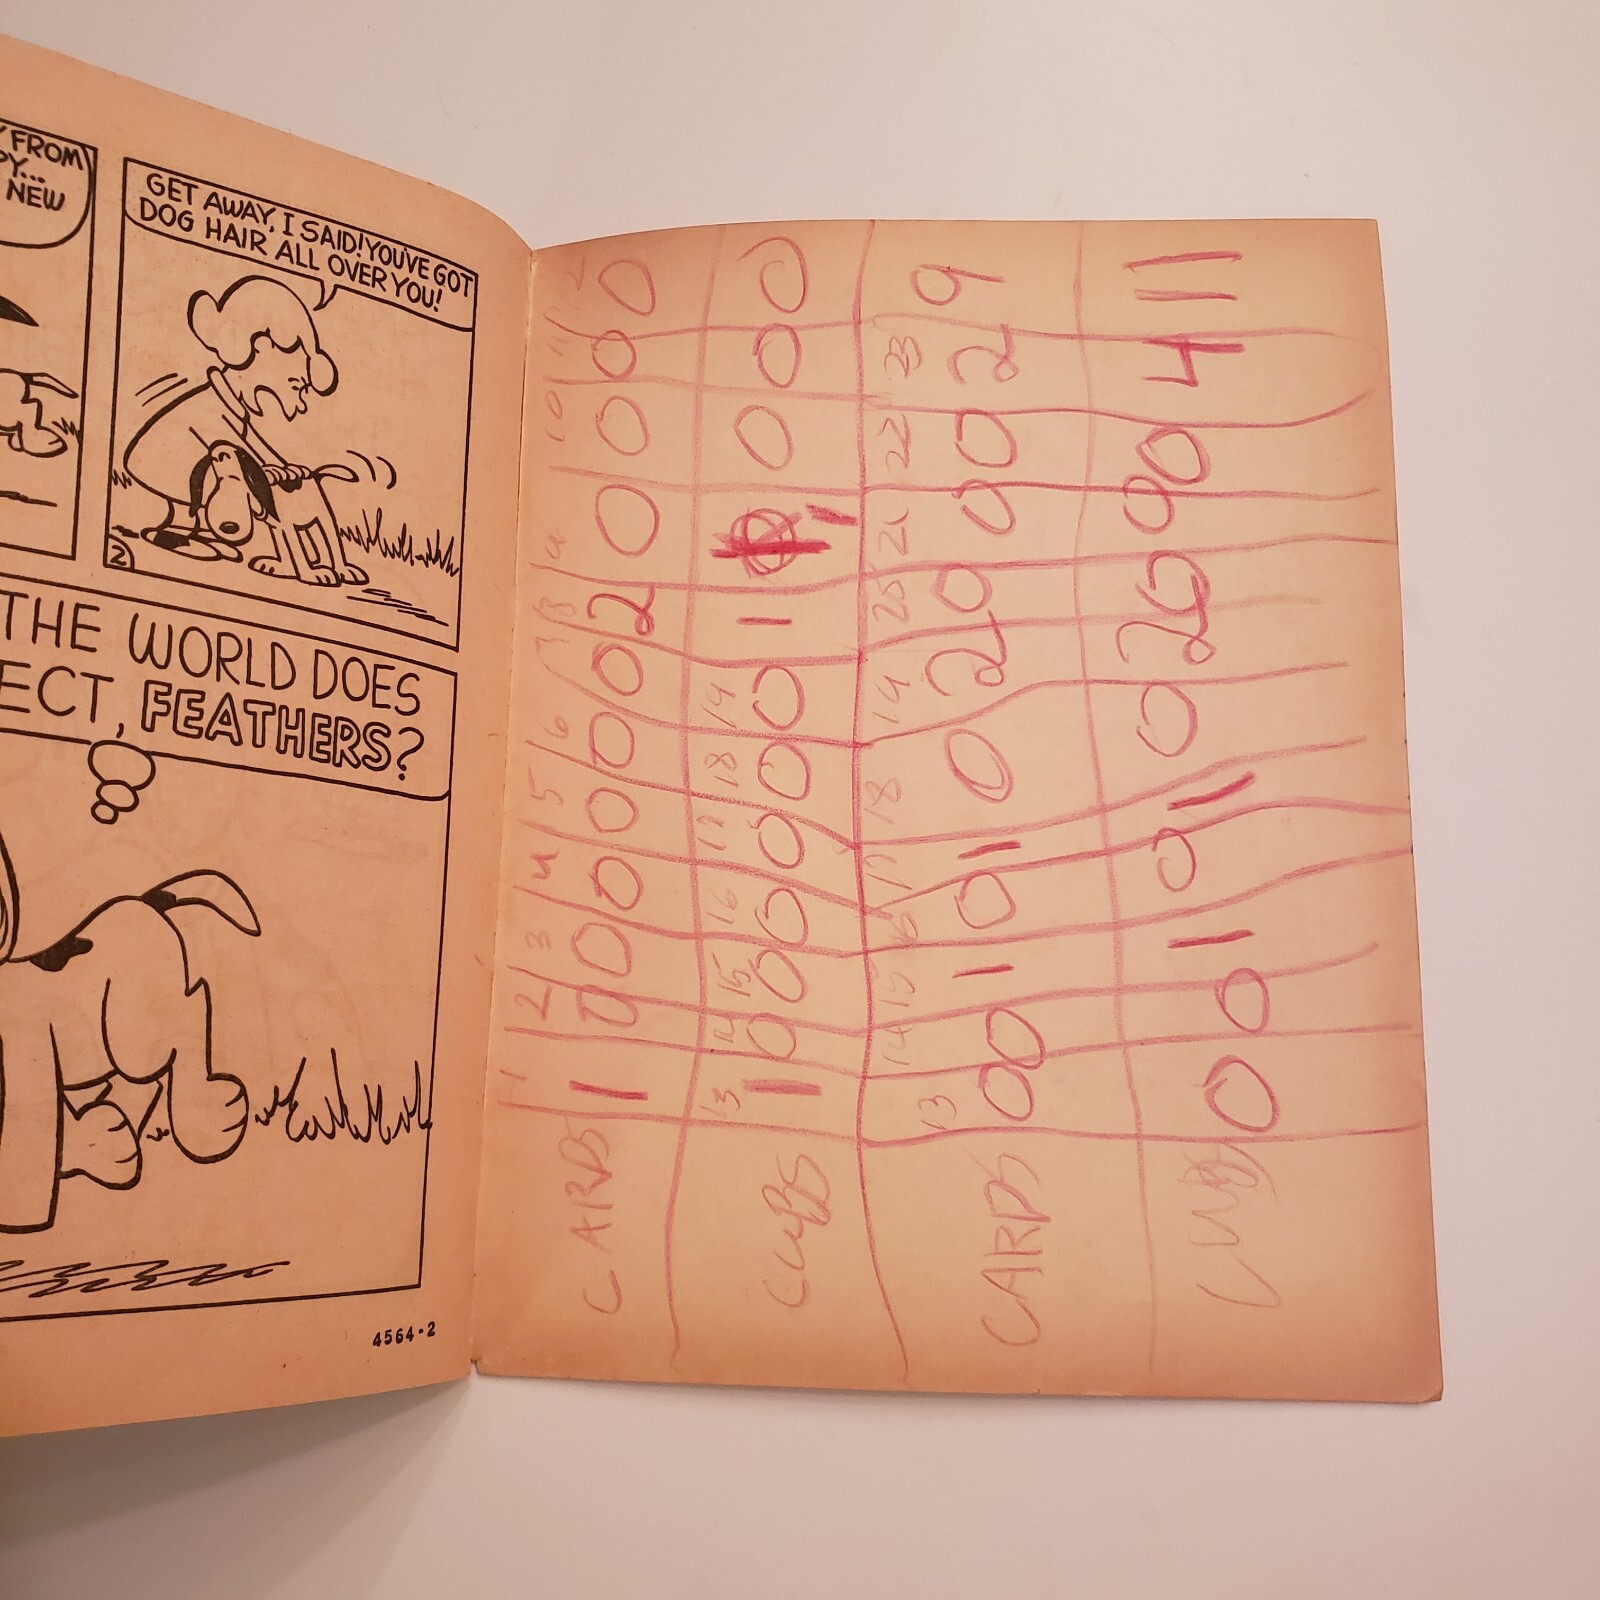 Y FROM
PY...
NEW
GET AWAY, I SAID! YOU'VE GOT
DOG HAIR ALL OVER YOU!
2
THE WORLD DOES
ECT, FEATHERS?
4564-2
1 2 3 4 5 6 7 8 9 10 11 12
CARDS 1 0 0 0 0 0 0 2 0 0 0 0
13 14 15 16 17 18 19
CUBS 1 0 0 0 0 0 0 1 1 0 0 0
13 14 15 16 17 18 19 25 21 22 23
CARDS 0 0 1 0 1 0 2 0 0 0 2 9
0 0 1 0 1 0 2 0 0 0 4 11